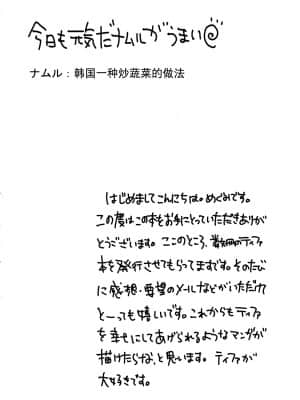 今日も元気だナムルがうまい@
ナムル：韩国一种炒蔬菜的做法
はじめましてこんにちは。めぐみです。
この度はこの本をお手にとっていただきありが
とうございます。ここのところ、数冊のティファ
本を発行させてもらってますです。そのたび
に感想・要望のメールなどがいただけ
とーっても嬉しいです。これからもティファ
を幸せにしてあげられるようなマンガが
描けたらな、と思います。ティファが
大好きです。